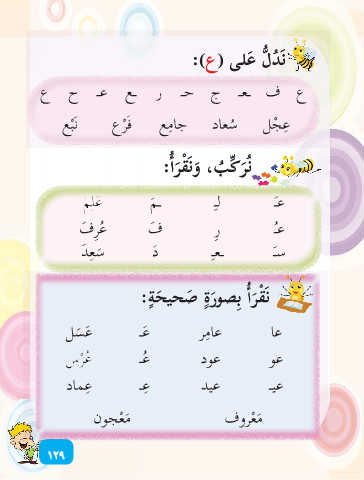 نَدُلُّ عَلى (ع):
ع ف ـعـ ج حـ ر ـع عـ ح ع
عِجْل سُعاد جامِع فَرْع نَبْع
نُرَكِّبُ، وَنَقْرَأُ:
عَـ لِـ ـمَ عَلِمَ
عُـ رِ فَ عُرِفَ
سَـ ـعِـ دَ سَعِدَ
نَقْرَأُ بِصورَةٍ صَحيحَةٍ:
عا عامِر عَـ عَسَل
عو عود عُـ عُرْس
عيـ عيد عِـ عِماد
مَعْروف مَعْجون
١٢٩